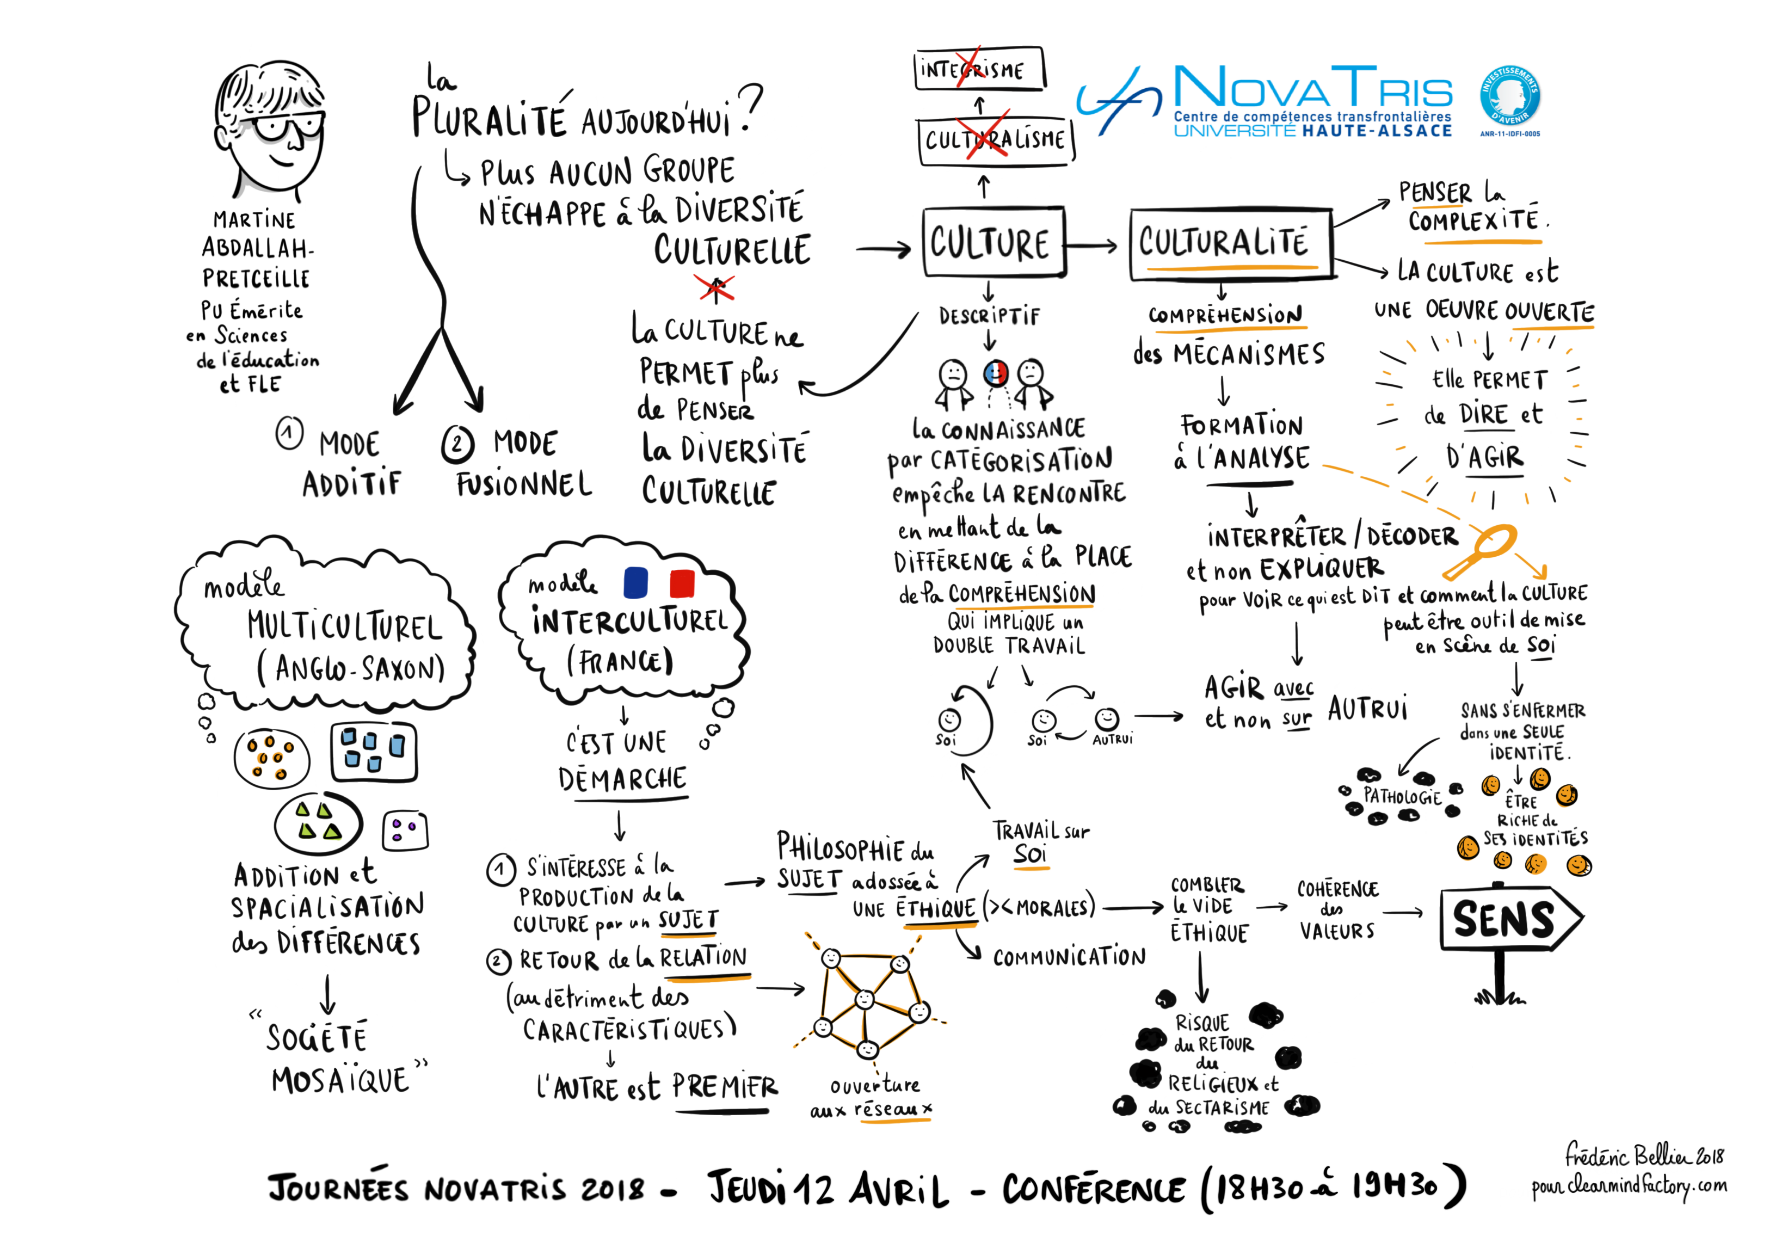 MARTINE
ABDALLAH-
PRETCEILLE
PU Émérite
en Sciences
de l'éducation
et FLE
la
PLURALITÉ AUJOURD'HUI ?
Plus AUCUN GROUPE
N'ÉCHAPPE à la DIVERSITÉ
CULTURELLE
1 MODE
ADDITIF
2 MODE
FUSIONNEL
La CULTURE ne
PERMET plus
de PENSER
la DIVERSITÉ
CULTURELLE
INTEGRISME
CULTURALISME
CULTURE
DESCRIPTIF
la CONNAISSANCE
par CATÉGORISATION
empêche LA RENCONTRE
en mettant de la
DIFFÉRENCE à la PLACE
de la COMPRÉHENSION
QUI IMPLIQUE un
DOUBLE TRAVAIL
SOI
SOI
AUTRUI
NOVATRIS
Centre de compétences transfrontalières
UNIVERSITÉ HAUTE-ALSACE
INVESTISSEMENTS
D'AVENIR
ANR-11-IDFI-0005
CULTURALITÉ
PENSER la
COMPLEXITÉ.
LA CULTURE est
UNE OEUVRE OUVERTE
Elle PERMET
de DIRE et
D'AGIR
COMPRÉHENSION
des MÉCANISMES
FORMATION
à l'ANALYSE
INTERPRÊTER / DÉCODER
et non EXPLIQUER
pour VOIR ce qui est DIT et comment la CULTURE
peut être outil de mise
en scène de SOI
AGIR avec
et non sur
AUTRUI
SANS S'ENFERMER
dans une SEULE
IDENTITÉ.
PATHOLOGIE
ÊTRE
RICHE de
SES IDENTITÉS
modèle
MULTICULTUREL
(ANGLO-SAXON)
ADDITION et
SPACIALISATION
des DIFFÉRENCES
"SOCIÉTÉ
MOSAÏQUE"
modèle
INTERCULTUREL
(FRANCE)
C'EST UNE
DÉMARCHE
1 S'INTÉRESSE à la
PRODUCTION de la
CULTURE par un SUJET
2 RETOUR de la RELATION
(au détriment des
CARACTÉRISTIQUES)
L'AUTRE est PREMIER
PHILOSOPHIE du
SUJET adossée à
UNE ÉTHIQUE (>< MORALES)
TRAVAIL sur
SOI
COMMUNICATION
ouverture
aux réseaux
COMBLER
le VIDE
ÉTHIQUE
COHÉRENCE
des
VALEURS
SENS
RISQUE
du RETOUR
du
RELIGIEUX et
du SECTARISME
JOURNÉES NOVATRIS 2018 - JEUDI 12 AVRIL - CONFÉRENCE (18H30 à 19H30)
Frédéric Bellier 2018
pour clearmindfactory.com